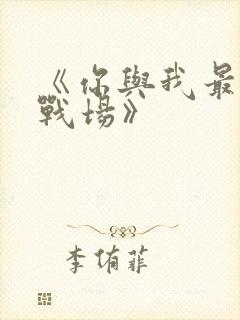 《你與我最
戰場》
李侑菲